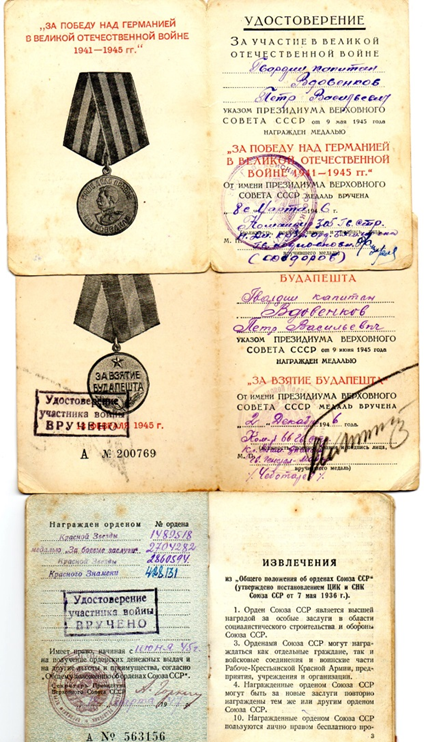 „ЗА ПОБЕДУ НАД ГЕРМАНИЕЙ
В ВЕЛИКОЙ ОТЕЧЕСТВЕННОЙ ВОЙНЕ
1941—1945 гг."
УДОСТОВЕРЕНИЕ
ЗА УЧАСТИЕ В ВЕЛИКОЙ
ОТЕЧЕСТВЕННОЙ ВОЙНЕ
Гвардии капитан
Вдовенков
Петр Васильевич
УКАЗОМ ПРЕЗИДИУМА ВЕРХОВНОГО
СОВЕТА СССР от 9 мая 1945 года
НАГРАЖДЕН МЕДАЛЬЮ
„ЗА ПОБЕДУ НАД ГЕРМАНИЕЙ
В ВЕЛИКОЙ ОТЕЧЕСТВЕННОЙ
ВОЙНЕ 1941—1945 гг."
ОТ ИМЕНИ ПРЕЗИДИУМА ВЕРХОВНОГО
СОВЕТА СССР МЕДАЛЬ ВРУЧЕНА
Марта 1946 г.
ЗА ВЗЯТИЕ
БУДАПЕШТА
Удостоверение
участника войны
ВРУЧЕНО
1945 г.
А № 200769
БУДАПЕШТА
Гвардии капитан
Вдовенков
Петр Васильевич
УКАЗОМ ПРЕЗИДИУМА ВЕРХОВНОГО
СОВЕТА СССР от 9 июня 1945 года
НАГРАЖДЕН МЕДАЛЬЮ
„ЗА ВЗЯТИЕ БУДАПЕШТА"
ОТ ИМЕНИ ПРЕЗИДИУМА ВЕРХОВНОГО
СОВЕТА СССР МЕДАЛЬ ВРУЧЕНА
Награжден орденом № ордена
Красной Звезды 1489518
медалью „За боевые заслуги" 2704282
Красной Звезды 2860594
Красного Знамени
Удостоверение
участника войны
ВРУЧЕНО
Имеет право, начиная с июня 45 г.
на получение орденских денежных выдач и
на другие льготы и преимущества, согласно
„Общему положению об орденах Союза ССР"
Секретарь Президиума
Верховного Совета СССР
А № 563156
ИЗВЛЕЧЕНИЯ
из „Общего положения об орденах Союза ССР"
(утверждено постановлением ЦИК и СНК
Союза ССР от 7 мая 1936 г.).
1. Орден Союза ССР является высшей
наградой за особые заслуги в области
социалистического строительства и обороны
Союза ССР.
3. Орденами Союза ССР могут награ-
ждаться как отдельные граждане, так и
войсковые соединения и воинские части
Рабоче-Крестьянской Красной Армии, пред-
приятия, учреждения и организации.
4. Награжденные орденом Союза ССР
могут быть за новые заслуги повторно
награждены тем же или другим орденом
Союза ССР.
10. Награжденные орденом Союза ССР
пользуются лично правом бесплатного про-
3